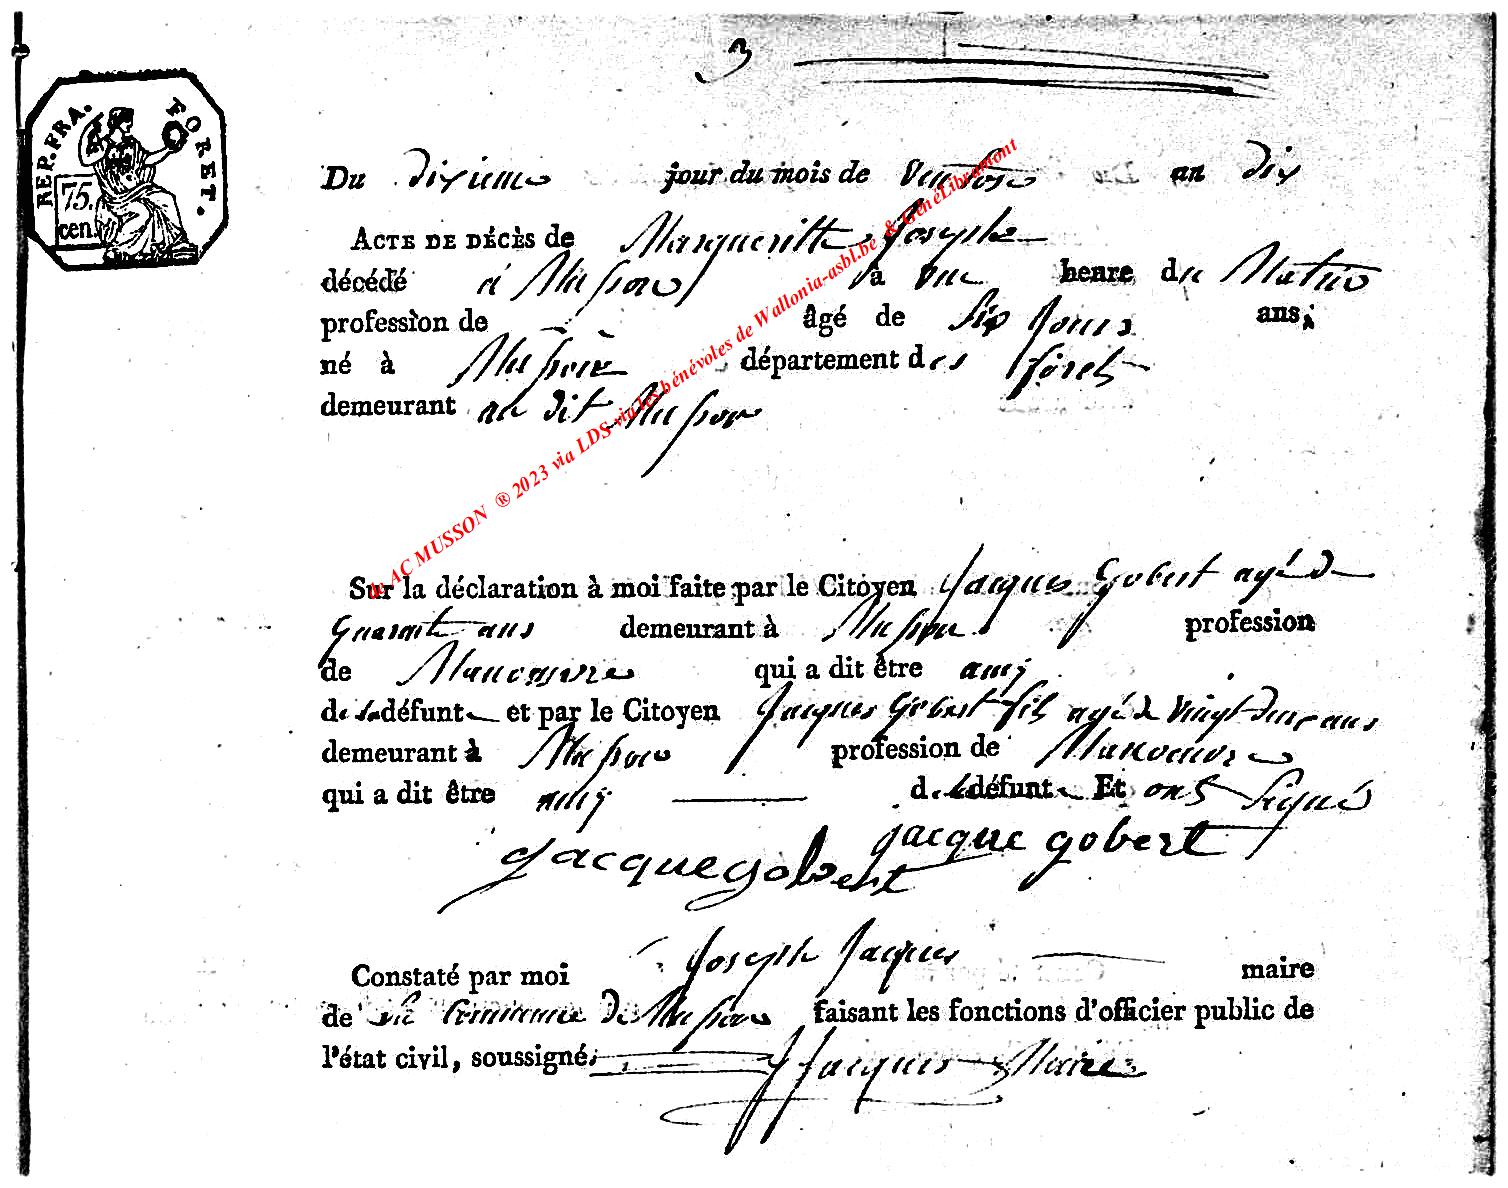 3
REP. FRA. FORET.
75.
cen.
Du dixieme jour du mois de Ventose an dix
ACTE DE DÉCÈS de Margueritte Josephe
décédé à Musson à une heure du Matin
profession de — âgé de Six Jours ans;
né à Musson département des forets
demeurant au dit Musson
Sur la déclaration à moi faite par le Citoyen Jacques Gobert agé de
Quarante ans demeurant à Musson profession
de Manoeuvre qui a dit être amÿ
de la défunte et par le Citoyen Jacques Gobert fils agé de Vingt deux ans
demeurant à Musson profession de Manoeuvre
qui a dit être amÿ de la défunte Et ont Signé
jacque gobert
jacque gobert
Constaté par moi Joseph Jacques maire
de la Commune de Musson faisant les fonctions d'officier public de
l'état civil, soussigné.
J Jacques Maire
AC MUSSON ® 2023 via LDS via les bénévoles de Wallonia-asbl.be & GénéLibramont